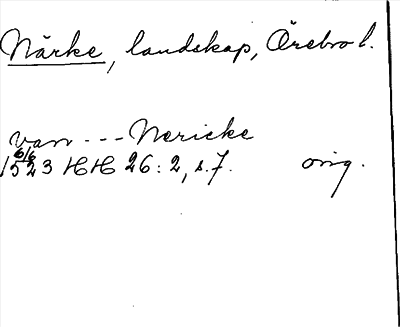 Närke, landskap, Örebro l.
van --- Nericke
6/6
1523 HH 26:2, s. 7. orig.